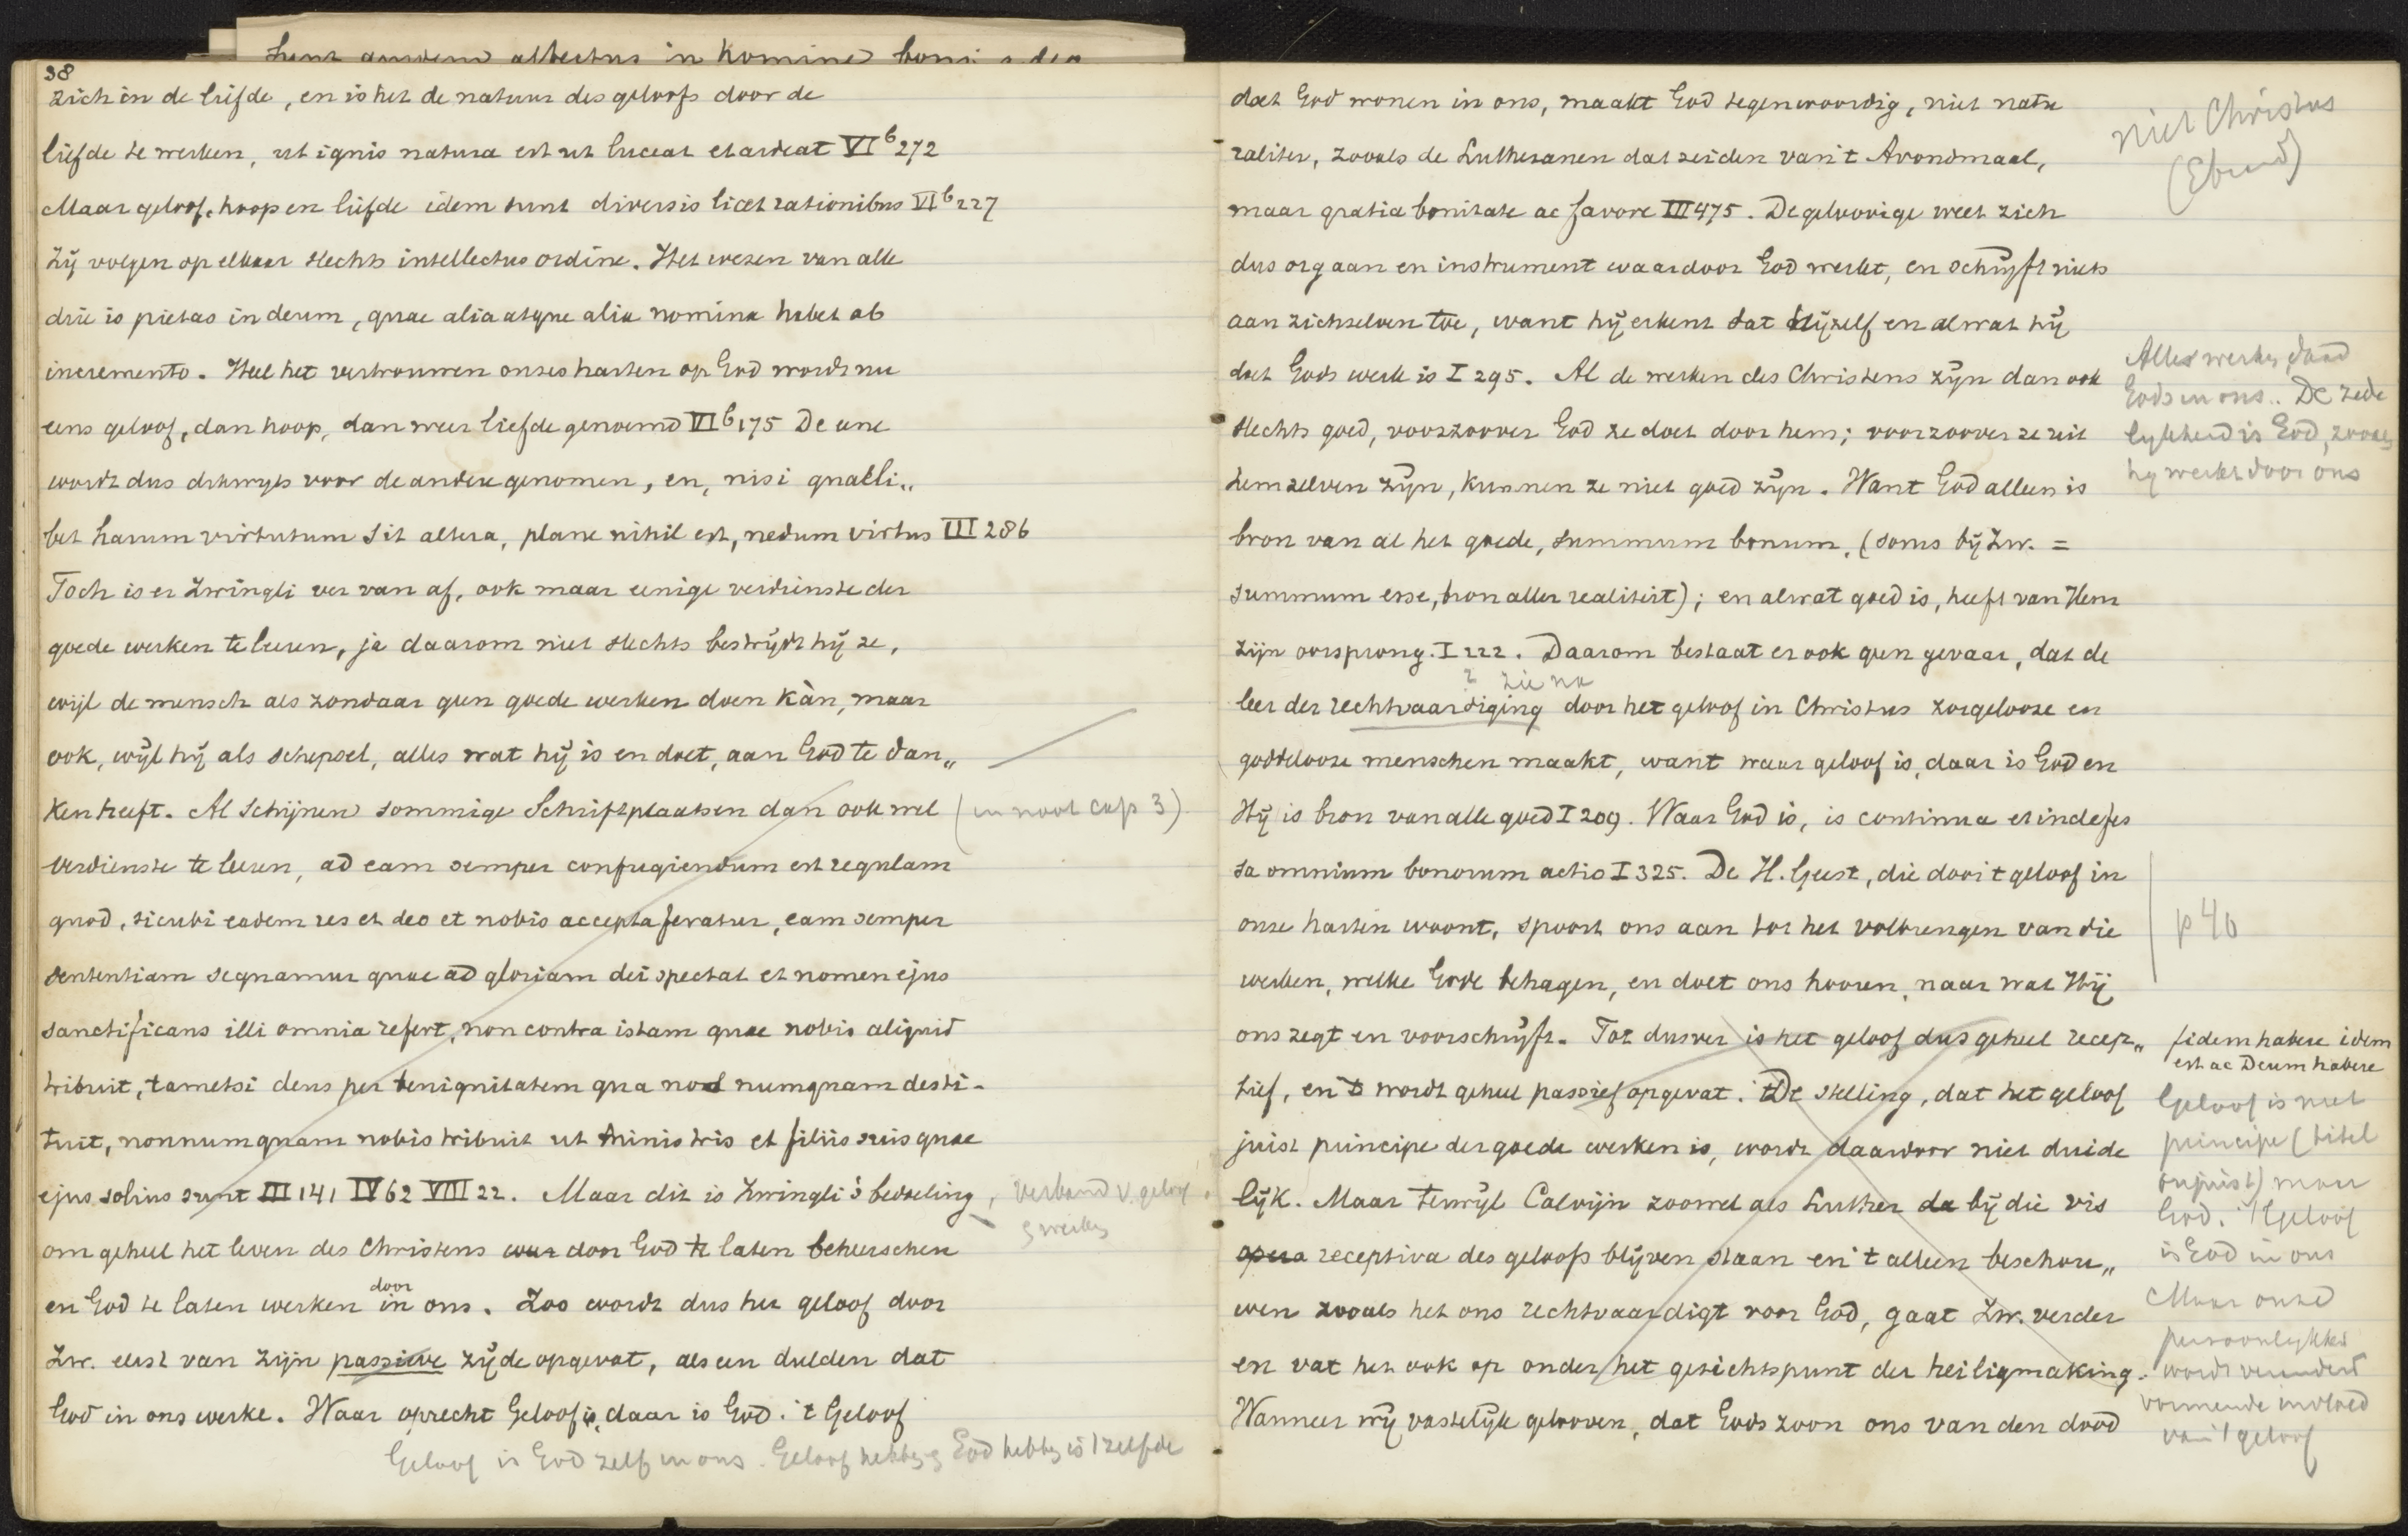 38
zich in de liefde, en is het de natuur des geloofs door de
liefde te werken, ut ignis natura est ut luceat et ardeat VI b 272
Maar geloof, hoop en liefde idem sunt diversis licet rationibus VI b 227
Zij volgen op elkaar slechts intellectus ordine. Het wezen van alle
drie is pietas in deum, quae alia atque alia nomina habet ab
incremento. Heel het vertrouwen onzes harten op God wordt nu
eens geloof, dan hoop, dan weer liefde genoemd VI b 175 De eene
wordt dus dikwijls voor de andere genomen, en, nisi quaeli„
bet harum virtutum sit altera, plane nihil est, nedum virtus III 286
Toch is er Zwingli ver van af, ook maar eenige verdienste der
goede werken te leeren, ja daarom niet slechts bestrijdt hij ze,
wijl de mensch als zondaar geen goede werken doen kàn, maar
ook, wijl hij als schepsel, alles wat hij is en doet, aan God te dan„
ken heeft. Al schijnen sommige Schriftplaatsen dan ook wel (in noot cap 3)
verdienste te leeren, ad eam semper confugiendum est regulam
quod, sicubi eadem res et deo et nobis accepta feratur, eam semper
sententiam sequamur quae ad gloriam dei spectat et nomen ejus
sanctificans illi omnia refert, non contra istam quae nobis aliquid
tribuit, tametsi deus per benignitatem qua nos numquam desti-
tuit, nonnumquam nobis tribuit ut ministris et filiis suis quae
ejus solius sunt III 141 IV 62 VIII 22. Maar dit is Zwingli's bedoeling, verband v. geloof
& werken
om geheel het leven des Christens door God te laten beheerschen
en God te laten werken door in ons. Zoo wordt dus het geloof door
Zw. eerst van zijn passieve zijde opgevat, als een dulden dat
God in ons werke. Waar oprecht Geloof is, daar is God. 't Geloof
Geloof is God zelf in ons. Geloof hebben & God hebben is 't zelfde
doet God wonen in ons, maakt God tegenwoordig, niet natu
raliter, zooals de Lutheranen dat zeiden van 't Avondmaal,
maar gratia bonitate ac favore III 475. De geloovige weet zich
dus orgaan en instrument waardoor God werkt, en schrijft niets
aan zichzelven toe, want hij erkent dat hijzelf en alwat hij
doet Gods werk is I 295. Al de werken des Christens zijn dan ook
slechts goed, voorzoover God ze doet door hem; voorzoover ze uit
hemzelven zijn, kunnen ze niet goed zijn. Want God alleen is
bron van al het goede, summum bonum, (soms bij Zw. =
summum esse, bron aller realiteit); en alwat goed is, heeft van Hem
zijn oorsprong. I 222. Daarom bestaat er ook geen gevaar, dat de
? zie na
leer der rechtvaardiging door het geloof in Christus zorgelooze en
goddelooze menschen maakt, want waar geloof is, daar is God en
Hij is bron van alle goed I 209. Waar God is, is continua et indefes
sa omnium bonorum actio I 325. De H. Geest, die door 't geloof in
onze harten woont, spoort ons aan tot het volbrengen van die
werken, welke Gode behagen, en doet ons hooren, naar wat Hij
ons zegt en voorschrijft. Tot dusver is het geloof dus geheel recep„
tief, en 't wordt geheel passief opgevat. De stelling, dat het geloof
juist principe der goede werken is, wordt daardoor niet duide
lijk. Maar terwijl Calvijn zoowel als Luther bij die vis
receptiva des geloofs blijven staan en 't alleen beschou„
wen zooals het ons rechtvaardigt voor God, gaat Zw. verder
en vat het ook op onder het gezichtspunt der heiligmaking.
Wanneer wij vastelijk gelooven, dat Gods zoon ons van den dood
niet Christus
(Ebrard)
Alles werken, daad
Gods in ons.. De zede
lijkheid is God, zooals
hij werkt door ons
p 40
fidem habere idem
est ac Deum habere
Geloof is niet
principe (titel
onjuist) maar
God. 't Geloof
is God in ons
Maar onze
persoonlijkheid
wordt
invloed
van 't geloof